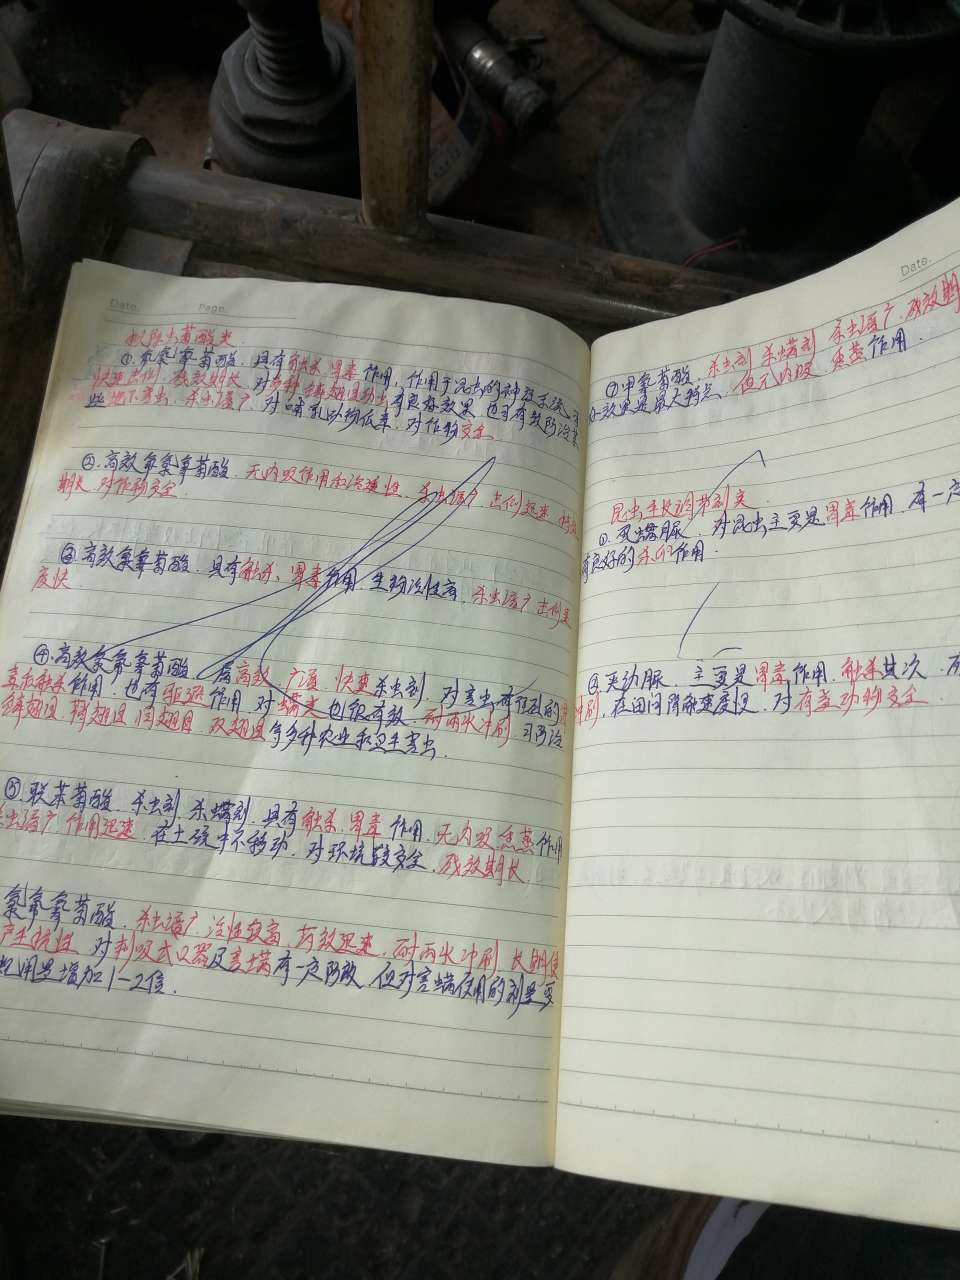 Date. Page.
拟除虫菊酸类
①. 氰氟氰菊酸. 具有触杀. 胃毒作用, 作用于昆虫的神经系统, 可
快速击倒, 残效期长. 对多种鳞翅目幼虫有良好效果 也可有效防治某
些地下害虫. 杀虫谱广. 对哺乳动物低毒. 对作物安全.
②. 高效氟氯氰菊酸. 无内吸作用和渗透性. 杀虫谱广. 击倒迅速. 持效
期长 对作物安全.
③. 高效氯氰菊酸. 具有触杀、胃毒作用. 生物活性高. 杀虫谱广 击倒速
度快
④. 高效氯氟氰菊酸. 属高效. 广谱. 快速杀虫剂. 对害虫有强烈的
胃毒和触杀作用. 也有驱避作用. 对螨类也很有效. 耐雨水冲刷. 可防治
鳞翅目, 鞘翅目 同翅目 双翅目等多种农业和卫生害虫.
⑤. 联苯菊酸. 杀虫剂. 杀螨剂. 具有触杀. 胃毒作用. 无内吸 熏蒸作用
杀虫谱广 作用迅速. 在土壤中不移动. 对环境较安全. 残效期长
氯氟氰菊酸. 杀虫谱广. 活性较高. 药效迅速. 耐雨水冲刷. 长期使
产生抗性. 对刺吸式口器及害螨有一定防效. 但对害螨使用的剂量要
用量增加1-2倍.
Date.
⑦甲氰菊酸. 杀虫剂 杀螨剂 杀虫谱广. 残效期
效果是最大特点. 但无内吸. 熏蒸作用.
昆虫生长调节剂类
①. 虱螨脲. 对昆虫主要是胃毒作用. 有一定
有良好的杀卵作用.
②. 灭幼脲. 主要是胃毒作用. 触杀其次. 
冲刷, 在田间降解速度慢. 对有益动物安全